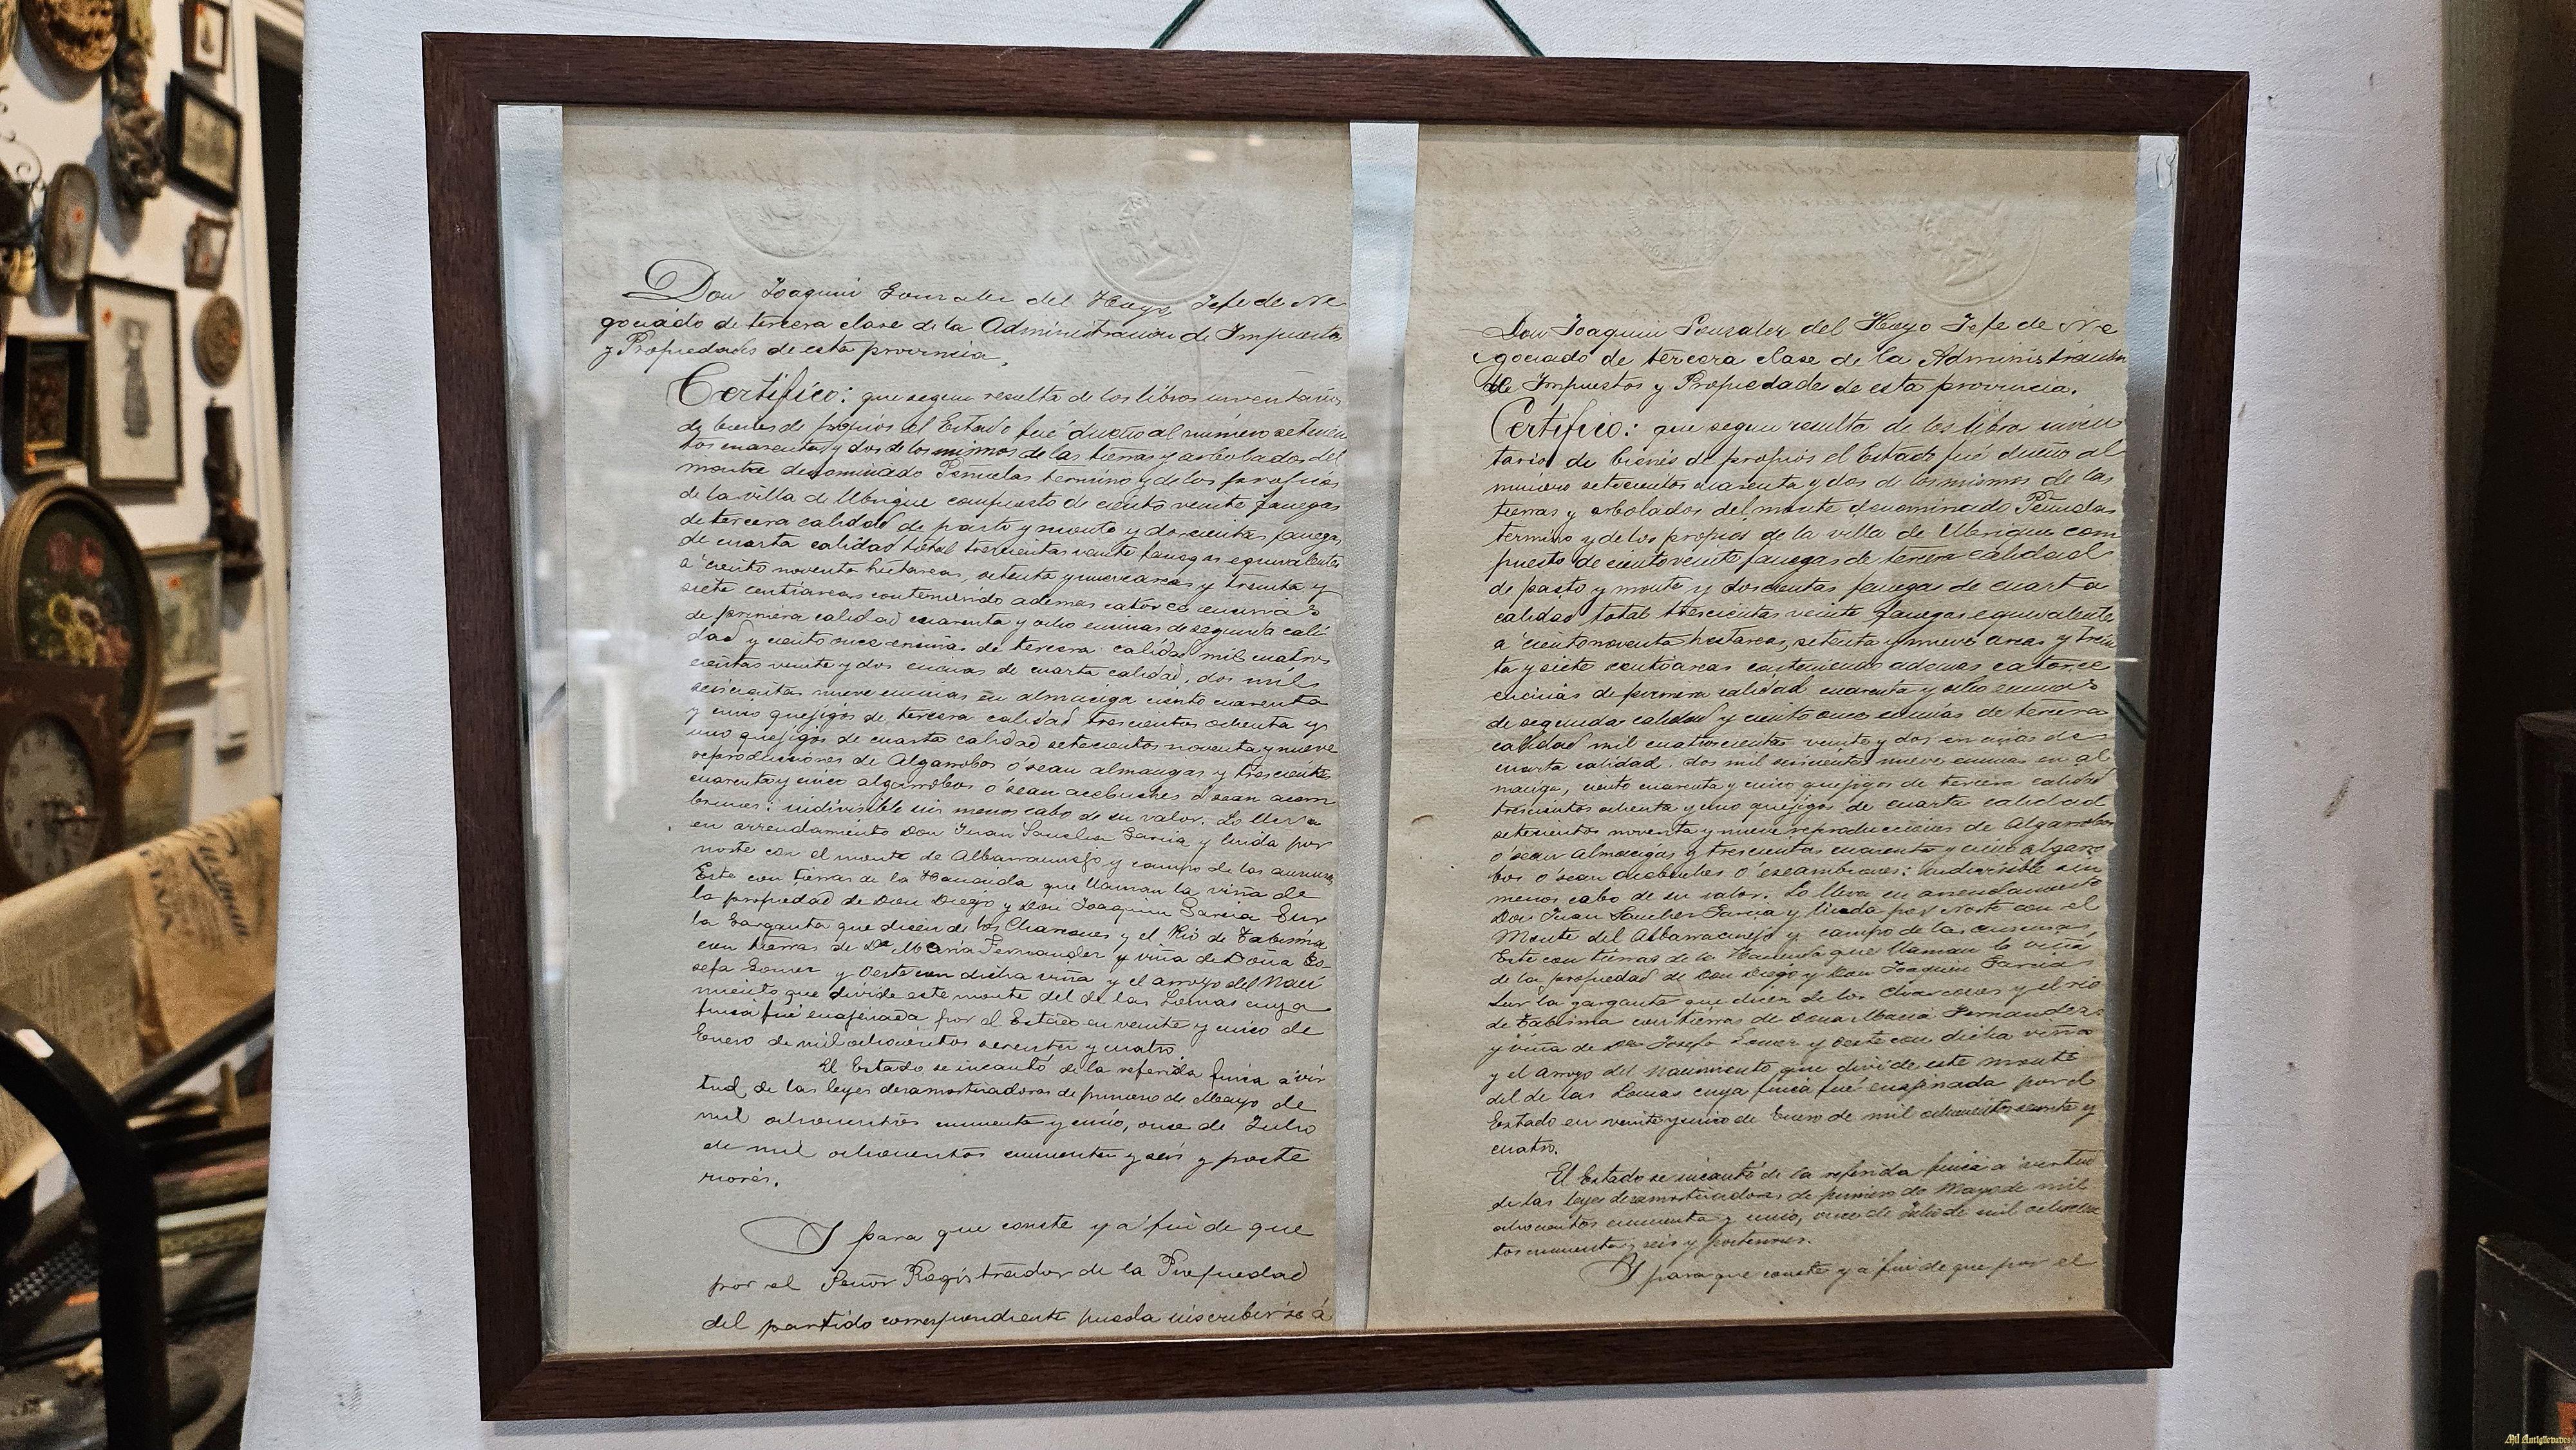 Don Joaquin Gonzalez del Hoyo Jefe de Ne
gociado de tercera clase de la Administracion de Impuestos
y Propiedades de esta provincia,
Certifico: que segun resulta de los libros inventarios
de bienes de propios el Estado fué dueño al número setecien
tos cuarenta y dos de los mismos de las tierras y arbolados del
monte denominado Peruelas término y de los propios
de la villa de Ubrique compuesto de ciento veinte fanegas
de tercera calidad de pasto y monte y doscientas fanegas
de cuarta calidad total trescientas veinte fanegas equivalentes
a ciento noventa hectareas, setenta y nueve areas y treinta y
siete centiareas conteniendo ademas catorce encinas
de primera calidad cuarenta y ocho encinas de segunda cali
dad y ciento once encinas de tercera calidad mil cuatro
cientas veinte y dos encinas de cuarta calidad, dos mil
seiscientas nueve encinas en almaciga ciento cuarenta
y cinco quejigos de tercera calidad trescientos ochenta y
uno quejigos de cuarta calidad setecientos noventa y nueve
reproducciones de Algarrobos ó sean almacigas y trescientos
cuarenta y cinco algarrobos ó sean acebuches ó sean acam
bruces: indivisible sin menos cabo de su valor. Lo lleva
en arrendamiento Don Juan Sanchez Garcia y linda por
norte con el monte de Albarracinejo y campo de las
Este con tierras de la Hacienda que llaman la viña de
la propiedad de Don Diego y Don Joaquin Garcia Sur
la Garganta que dicen de los Charcones y el Rio de Tabisma
con tierras de Dª Maria Fernandez y viña de Doña Jo-
sefa Gomez y Oeste con dicha viña y el arroyo del Naci
miento que divide este monte del de las Lomas cuya
finca fué enajenada por el Estado en veinte y cinco de
Enero de mil ochocientos sesenta y cuatro
El Estado se incautó de la referida finca a vir
tud de las leyes desamortizadoras de primero de Mayo de
mil ochocientos cincuenta y cinco, once de Julio
de mil ochocientos cincuenta y seis y poste
riores.
Y para que conste y a fin de que
por el Señor Registrador de la Propiedad
del partido correspondiente pueda inscribirse á
Don Joaquin Gonzalez del Hoyo Jefe de Ne
gociado de tercera clase de la Administracion
de Impuestos y Propiedades de esta provincia.
Certifico: que segun resulta de los libros inven
tarios de bienes de propios el Estado fué dueño al
número setecientos cuarenta y dos de los mismos de las
tierras y arbolados del monte denominado Peruelas
termino y de los propios de la villa de Ubrique com
puesto de ciento veinte fanegas de tercera calidad
de pasto y monte y doscientas fanegas de cuarta
calidad total trescientas veinte fanegas equivalentes
a ciento noventa hectareas, setenta y nueve areas y trein
ta y siete centiareas conteniendo ademas catorce
encinas de primera calidad cuarenta y ocho encinas
de segunda calidad y ciento once encinas de tercera
calidad mil cuatrocientas veinte y dos encinas de
cuarta calidad. dos mil seiscientas nueve encinas en al
maciga, ciento cuarenta y cinco quejigos de tercera calidad
trescientos ochenta y uno quejigos de cuarta calidad
setecientos noventa y nueve reproducciones de Algarrobos
ó sean Almacigas y trescientas cuarenta y cinco algarro
bos ó sean acebuches ó escambrones: indivisible sin
menos cabo de su valor. Lo lleva en arrendamiento
Don Juan Sanchez Garcia y linda por Norte con el
Monte del Albarracinejo y campo de las
Este con tierras de la Hacienda que llaman la viña
de la propiedad de Don Diego y Don Joaquin Garcia
Sur la garganta que dicen de los Charcones y el rio
de Tabisma con tierras de Doña Maria Fernandez
y viña de Dña Josefa Gomez y Oeste con dicha viña
y el arroyo del Nacimiento que divide este monte
del de las Lomas cuya finca fué enajenada por el
Estado en veinte y cinco de Enero de mil ochocientos sesenta y
cuatro.
El Estado se incautó de la referida finca a virtud
de las leyes desamortizadoras de primero de Mayo de mil
ochocientos cincuenta y cinco, once de Julio de mil ochocien
tos cincuenta y seis y posteriores.
Y para que conste y a fin de que por el
Mil Antigüedades